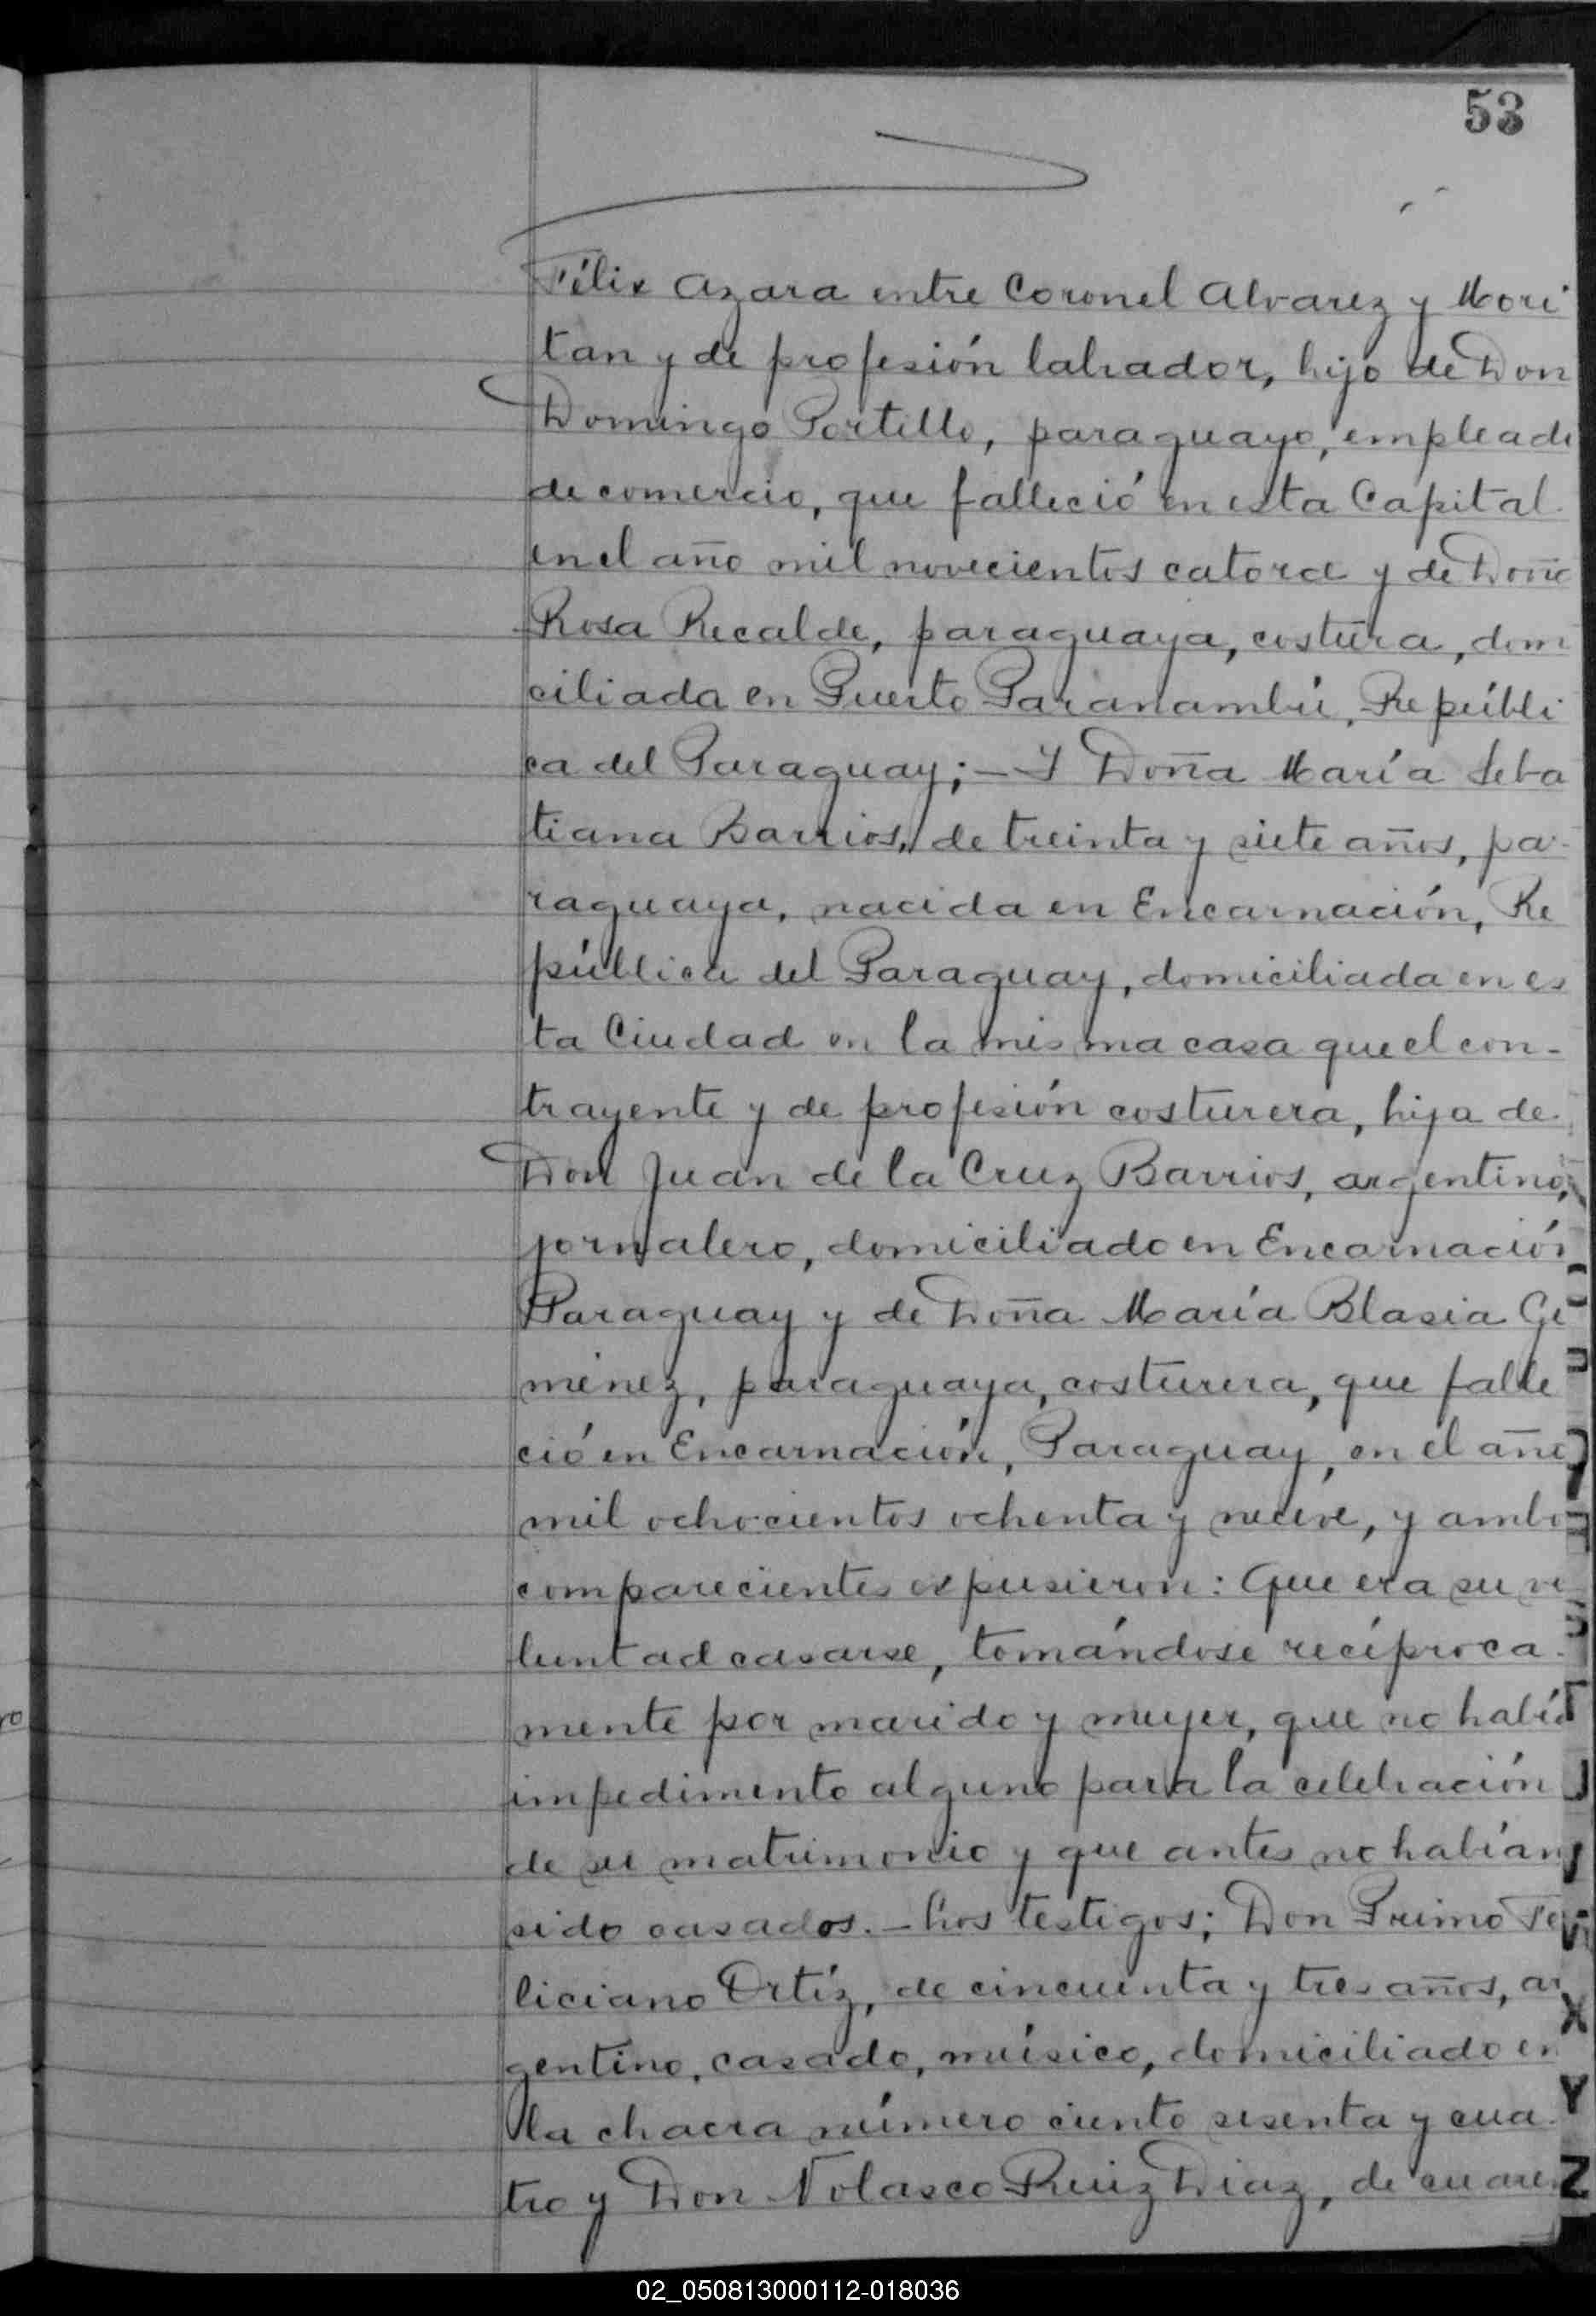 53
Félix Azara entre Coronel Alvarez y Mori
tan y de profesión labrador, hijo de Don
Domingo Portillo, paraguayo, empleado
de comercio, que falleció en esta Capital
en el año mil novecientos catorce y de Doña
Rosa Recalde, paraguaya, costura, domi
ciliada en Puerto Paranambú, Repúbli
ca del Paraguay; - Y Doña María Seba
tiana Barrios, de treinta y siete años, pa-
raguaya, nacida en Encarnación, Re
pública del Paraguay, domiciliada en es
ta Ciudad en la misma casa que el con-
trayente y de profesión costurera, hija de
Don Juan de la Cruz Barrios, argentino,
jornalero, domiciliado en Encarnación
Paraguay y de Doña María Blasia Gi
menez, paraguaya, costurera, que falle
ció en Encarnación, Paraguay, en el año
mil ochocientos ochenta y nueve, y ambos
comparecientes expusieron: Que era su vo
luntad casarse, tomándose recíproca-
mente por marido y mujer, que no había
impedimento alguno para la celebración
de su matrimonio y que antes no habían
sido casados. - Los testigos; Don Primo Fe
liciano Ortíz, de cincuenta y tres años, ar
gentino, casado, músico, domiciliado en
la chacra número ciento sesenta y cua-
tro y Don Nolasco Ruiz Diaz, de cuaren
X
Y
Z
02_050813000112-018036